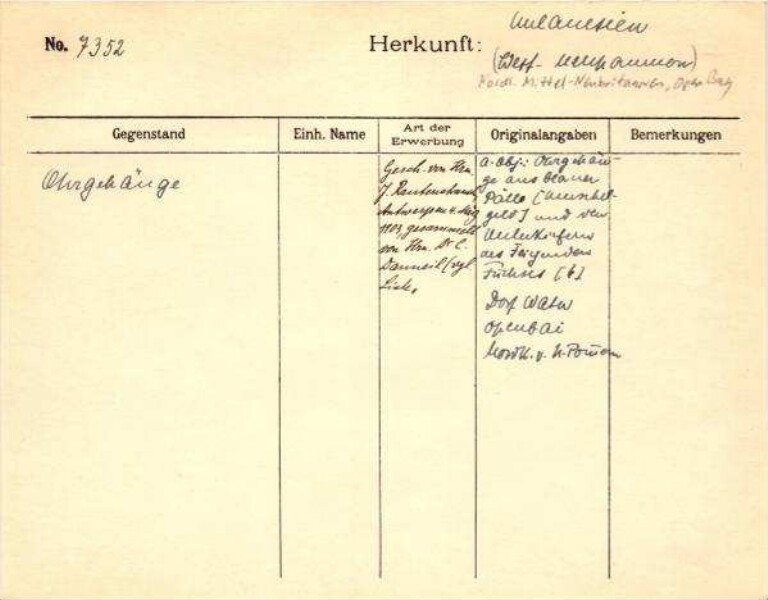 No. 7352
Herkunft: Melanesien
(West-Neupommern)
Nördl. Mittel-Neubritannien, Open Bay
Gegenstand
Einh. Name
Art der Erwerbung
Originalangaben
Bemerkungen
Ohrgehänge
Gesch. von Hrn.
J. Rautenstrauch,
Antwerpen
gesammelt
von Hrn. Dr C.
Danneil (vgl
Liste,
a. Obj.: Ohrgehän-
ge aus blauer
Pälle (Muschel-
geld) und den
Unterkiefern
des fliegenden
Fuchses (b)
Dorf Watu
Openbai
Nordk. v. N. Pomm